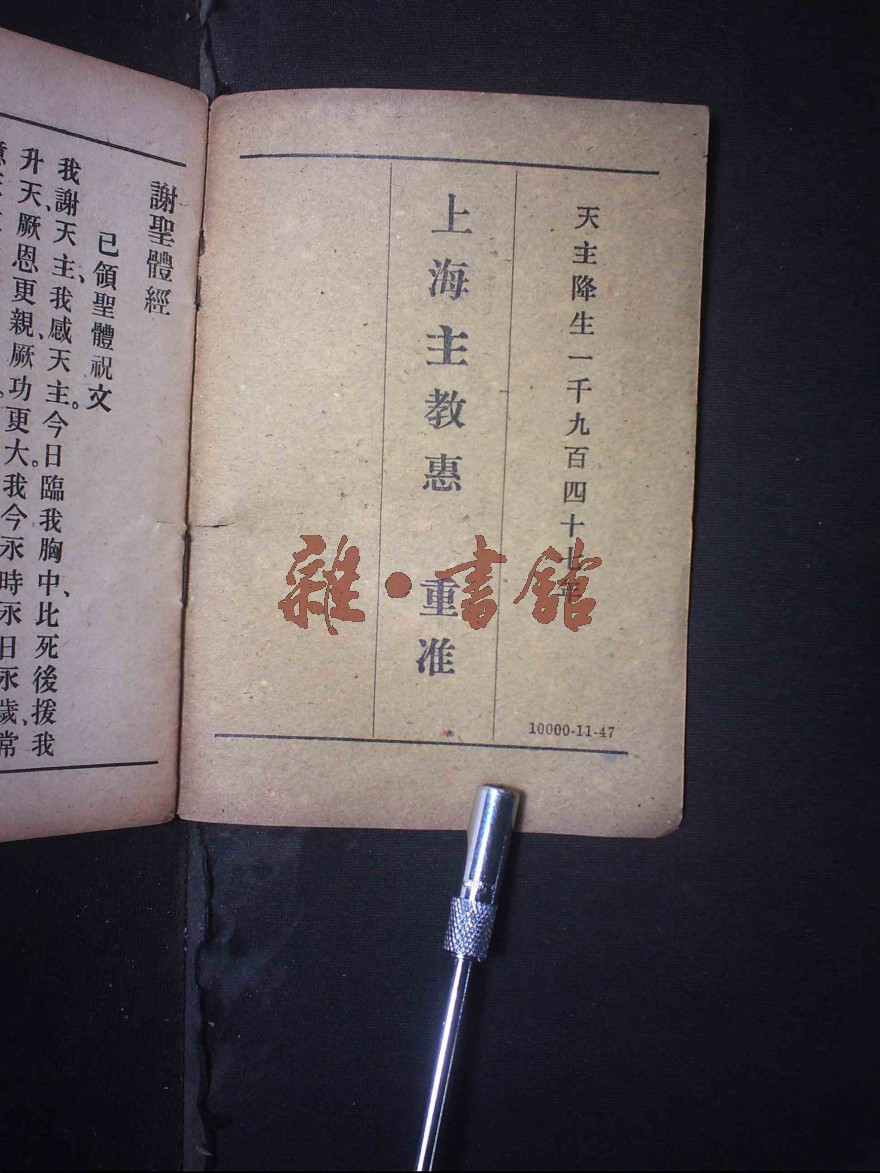 天主降生一千九百四十七年
上海主教惠 重准
10000-11-47
謝聖體經
已領聖體祝文
我謝天主、我感天主。今日臨我胸中、比死後援我
升天、厥恩更親、厥功更大。我今永時永日永歲、常
雜·書館